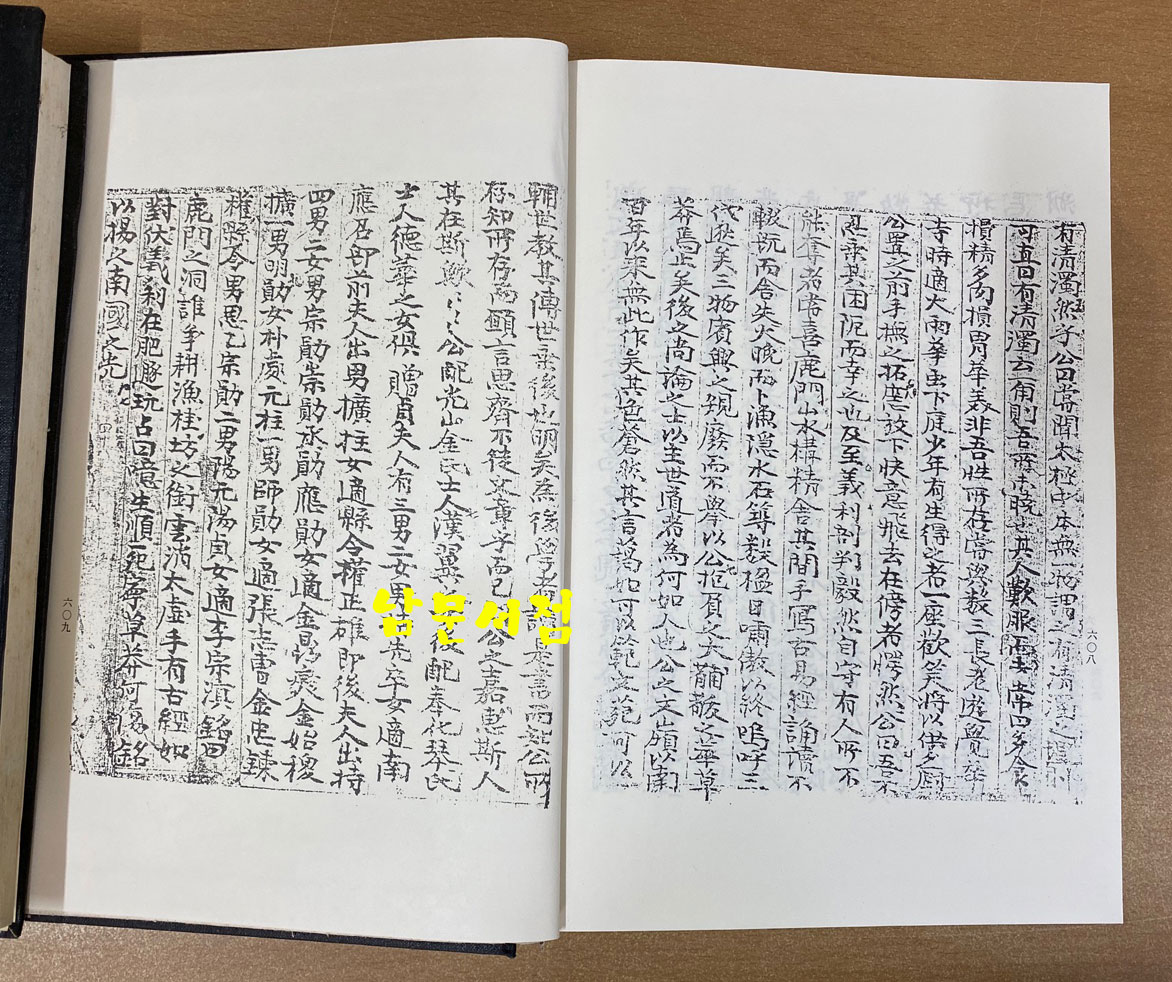 有清濁然乎公曰嘗聞太極中本無一物謂之有清濁之理則
可直曰有清濁云爾則吾所未曉也其人歎服云嘗席四多食
損精多勿損胃華美非吾性所存嘗與数三長老遊覺華
寺時適大雨羣虫下庭少年有生得之者一座歡笑將以供夕厨
公置之前手撫之拓塵放下快意飛去在傍者愕然公曰吾不
忍乘其困阨而幸之也及至義利剖判毅然自守有人所不
能奪者嘗喜鹿門山水構精舍其間手寫古易經誦讀不
輟旣而舍失火晚而卜漁隱水石等数楹日嘯傲以終嗚呼三
代遠矣三物賓興之規廢而不學以公抱負之大黼黻之華草
莽焉止矣後之尚論之士以主世道者為何如人也公之文頗以南
百年以來無此作矣其色蒼然其言謁如可以範之範可以
六〇八
輔世教其傳世垂後也明矣為後學者讀是書而誌公所
存知所存而願言思齋不徒文章乎而已公之嘉惠斯人
其在斯歟公配光山金氏士人漢翼之女後配奉化琴氏
士人德華之女俱贈貞夫人有三男二女男 先卒女適南
應召部前夫人出男擴柱女適縣令權正雄即後夫人出持
四男二女男宗勛崇勛丞勛應勛女適金 金始㮨
擴一男明勛女朴處元柱一男師勛女適張志 金忠鍊
權縣令男思乙宗勛二男陽元湯貞女適李宗滇銘曰
鹿門之洞誰爭耕漁桂坊之銜雲消太虛手有古經如
對伏羲剝在肥遯玩占曰憶生順死寧草莽何 銘
以揚之南國之光
六〇九
남문서점